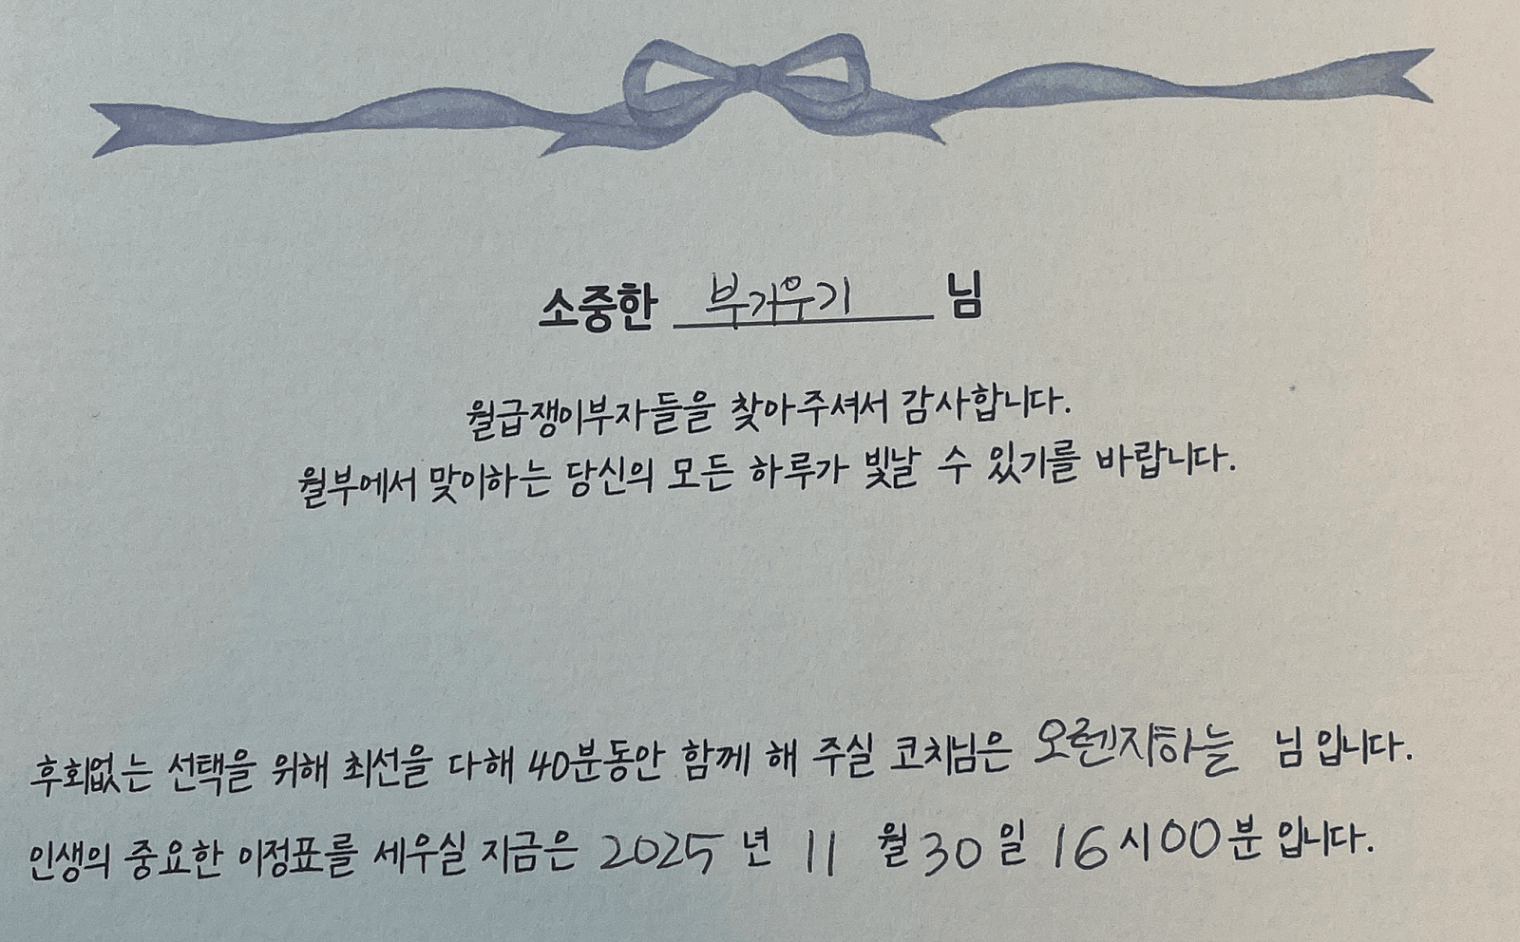 소중한 부겨우기 님
월급쟁이부자들을 찾아주셔서 감사합니다.
월부에서 맞이하는 당신의 모든 하루가 빛날 수 있기를 바랍니다.
후회없는 선택을 위해 최선을 다해 40분동안 함께 해 주실 코치님은 오렌지하늘 님 입니다.
인생의 중요한 이정표를 세우실 지금은 2025 년 11 월 30 일 16 시 00 분 입니다.